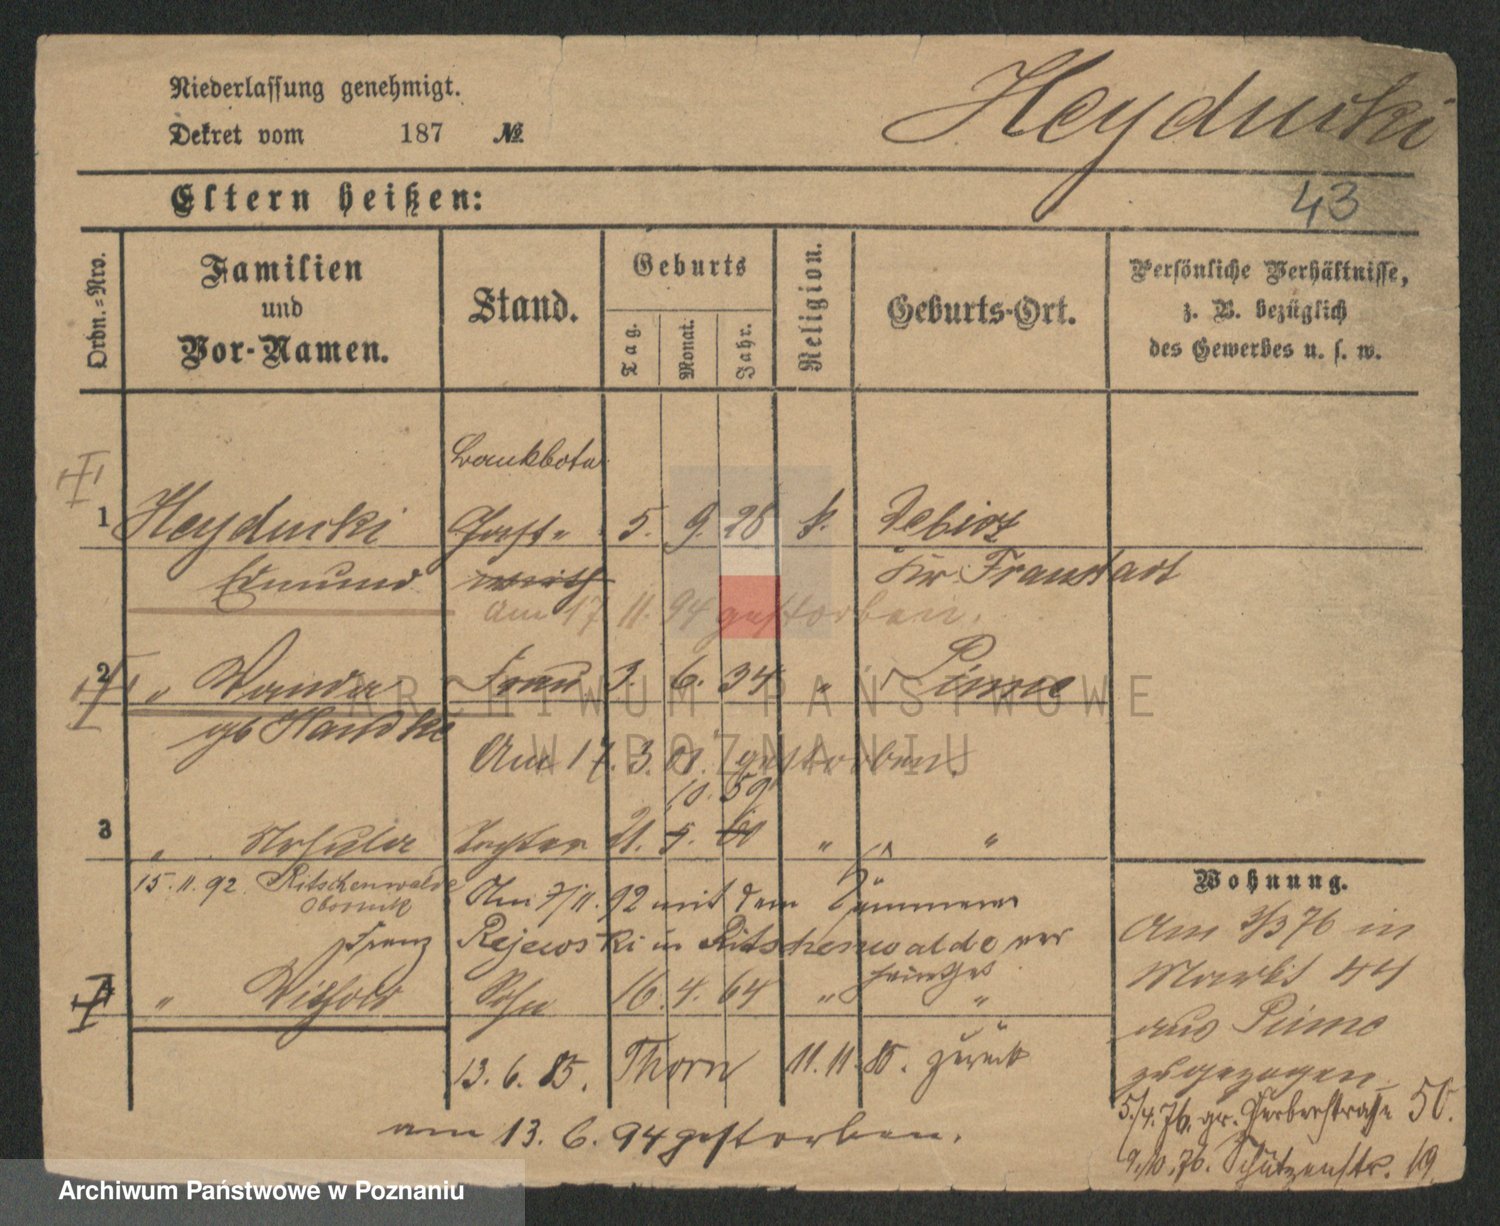 Niederlassung genehmigt.
Dekret vom 187 №
Heyducki
43
Eltern heißen:
Ordn.-Nro.
Familien
und
Vor-Namen.
Stand.
Geburts
Tag.
Monat.
Jahr.
Religion.
Geburts-Ort.
Persönliche Verhältnisse,
z. B. bezüglich
des Gewerbes u. s. w.
Bankbote
1 Heyducki Gast- 5. 9. 28 k.
Edmund wirth Kr. Fraustadt
am 17 11. 94 gestorben.
2 " Wanda Frau 3. 6. 34 " Pinne
gb
Am 17. 3. 01. gestorben.
10. 59
3 " Tochter 21. 5. 60 " "
15. 11. 92 Ritschenwalde
Obornik
Am 7/11. 92 mit dem
Franz Rejewski in Ritschenwalde ver
heirathet
4 " Withold Sohn 16. 4. 64 " "
13. 6. 85. Thorn 11. 11. 85. zurück
am 13. 6. 94 gestorben.
Wohnung.
Am 3/3 76 in
Markt 44
aus Pinne
zugezogen
5/4. 76. gr. Gerberstraße 50.
9./10. 76. Schützenstr. 19.
ARCHIWUM PAŃSTWOWE
W POZNANIU
Archiwum Państwowe w Poznaniu